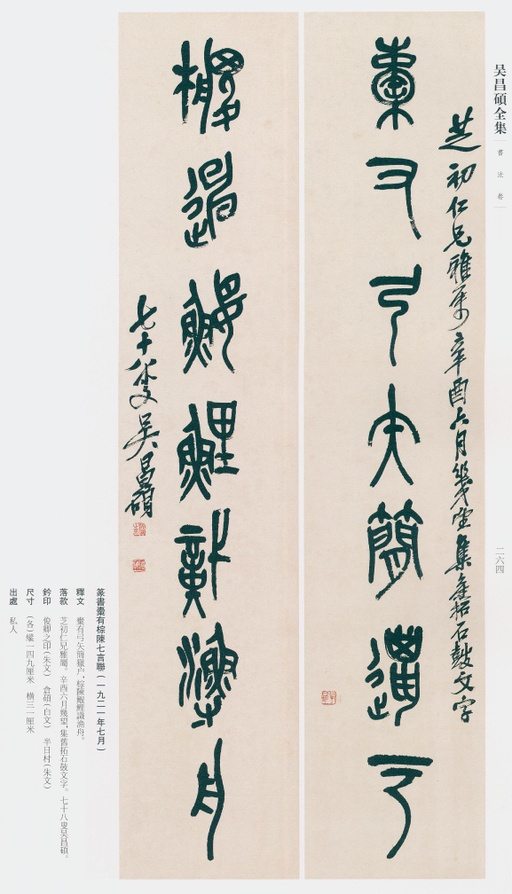 吴昌碩全集
書法卷
二六四
芝初仁兄雅屬辛酉六月幾望集舊拓石鼓文字
橐又弓矢
鰋鯉
舟
七十八叟吴昌碩
篆書橐有棕陳七言聯(一九二一年七月)
釋文 橐有弓矢
落款 芝初仁兄雅屬。辛酉六月幾望,集舊拓石鼓文字。七十八叟吴昌碩。
鈐印 俊卿之印(朱文) 倉碩(白文) 半日村(朱文)
尺寸 (各)縱一四九厘米 横三一厘米
出處 私人